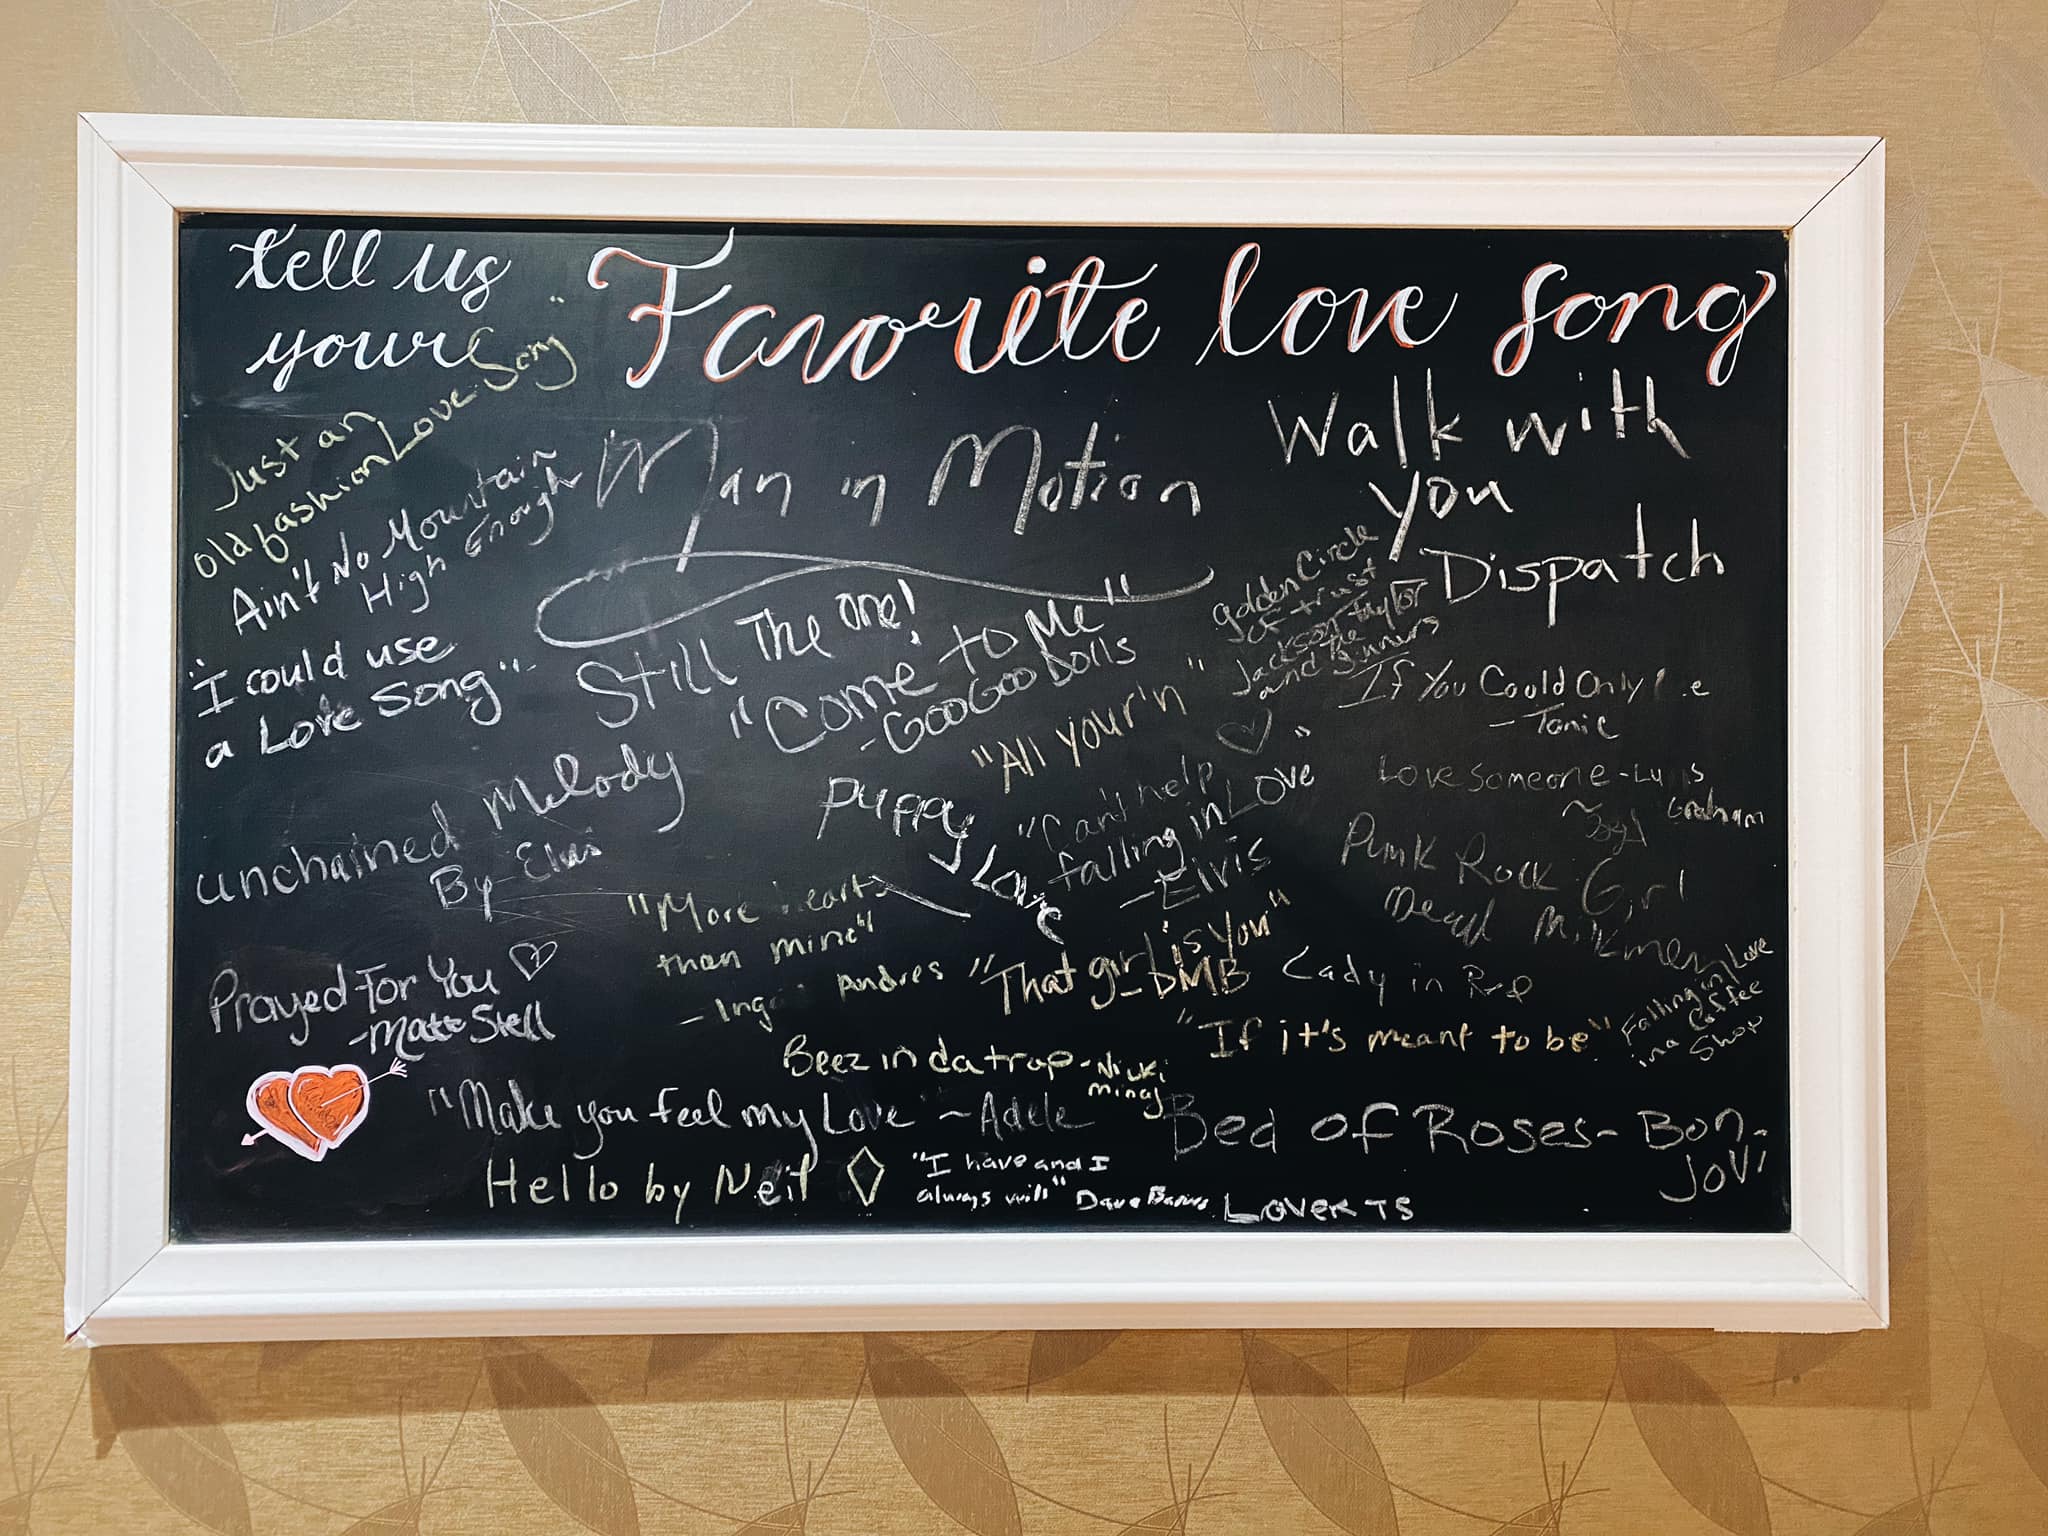 tell us
your
Favorite love song
Just an
old fashion Love Song"
Ain't No Mountain
High Enough
"I could use
a Love Song"
Man in Motion
Walk with
you
Dispatch
Still The one!
"Come to Me"
-Goo Goo Dolls
golden Circle
of trust
Jackson Taylor
and the
Sinners
If You Could Only
- Tonic
"All your'n"
Love Someone - Lukas
Graham
unchained Melody
By-Elvis
Puppy Love
"Can't help
falling in Love"
-Elvis
Punk Rock Girl
Dead Milkmen
"More hearts
than mine"
- Ingr Andres
"That girl is you"
- DMB
Lady in Red
Prayed For You
-Matt Stell
"If it's meant to be"
Falling in Love
in a Coffee
Shop
Beez in da trap - Nicki
minaj
"Make you feel my Love" ~ Adele
Bed of Roses - Bon-
Jovi
Hello by Neil
"I have and I
always will" Dave Barnes
Lover TS